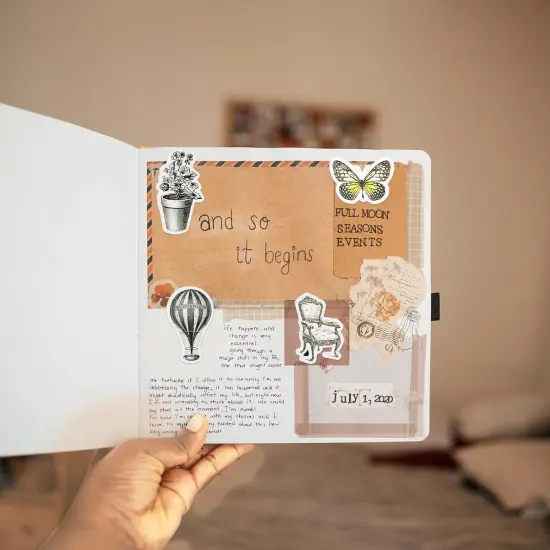 and so
it begins
FULL MOON
SEASONS
EVENTS
life happens and
change is very
essential.
Going through a
major shift in my life,
one that might cause
me heartache if I allow it to. Currently I'm not
addressing the change, it has happened and it
might drastically affect my life, but right now
I'm not intending to think about it. We could
say that at the moment, I'm numb!
For now I'm with my choices and I
have no very excited about this new
beginning
july 1, 2020